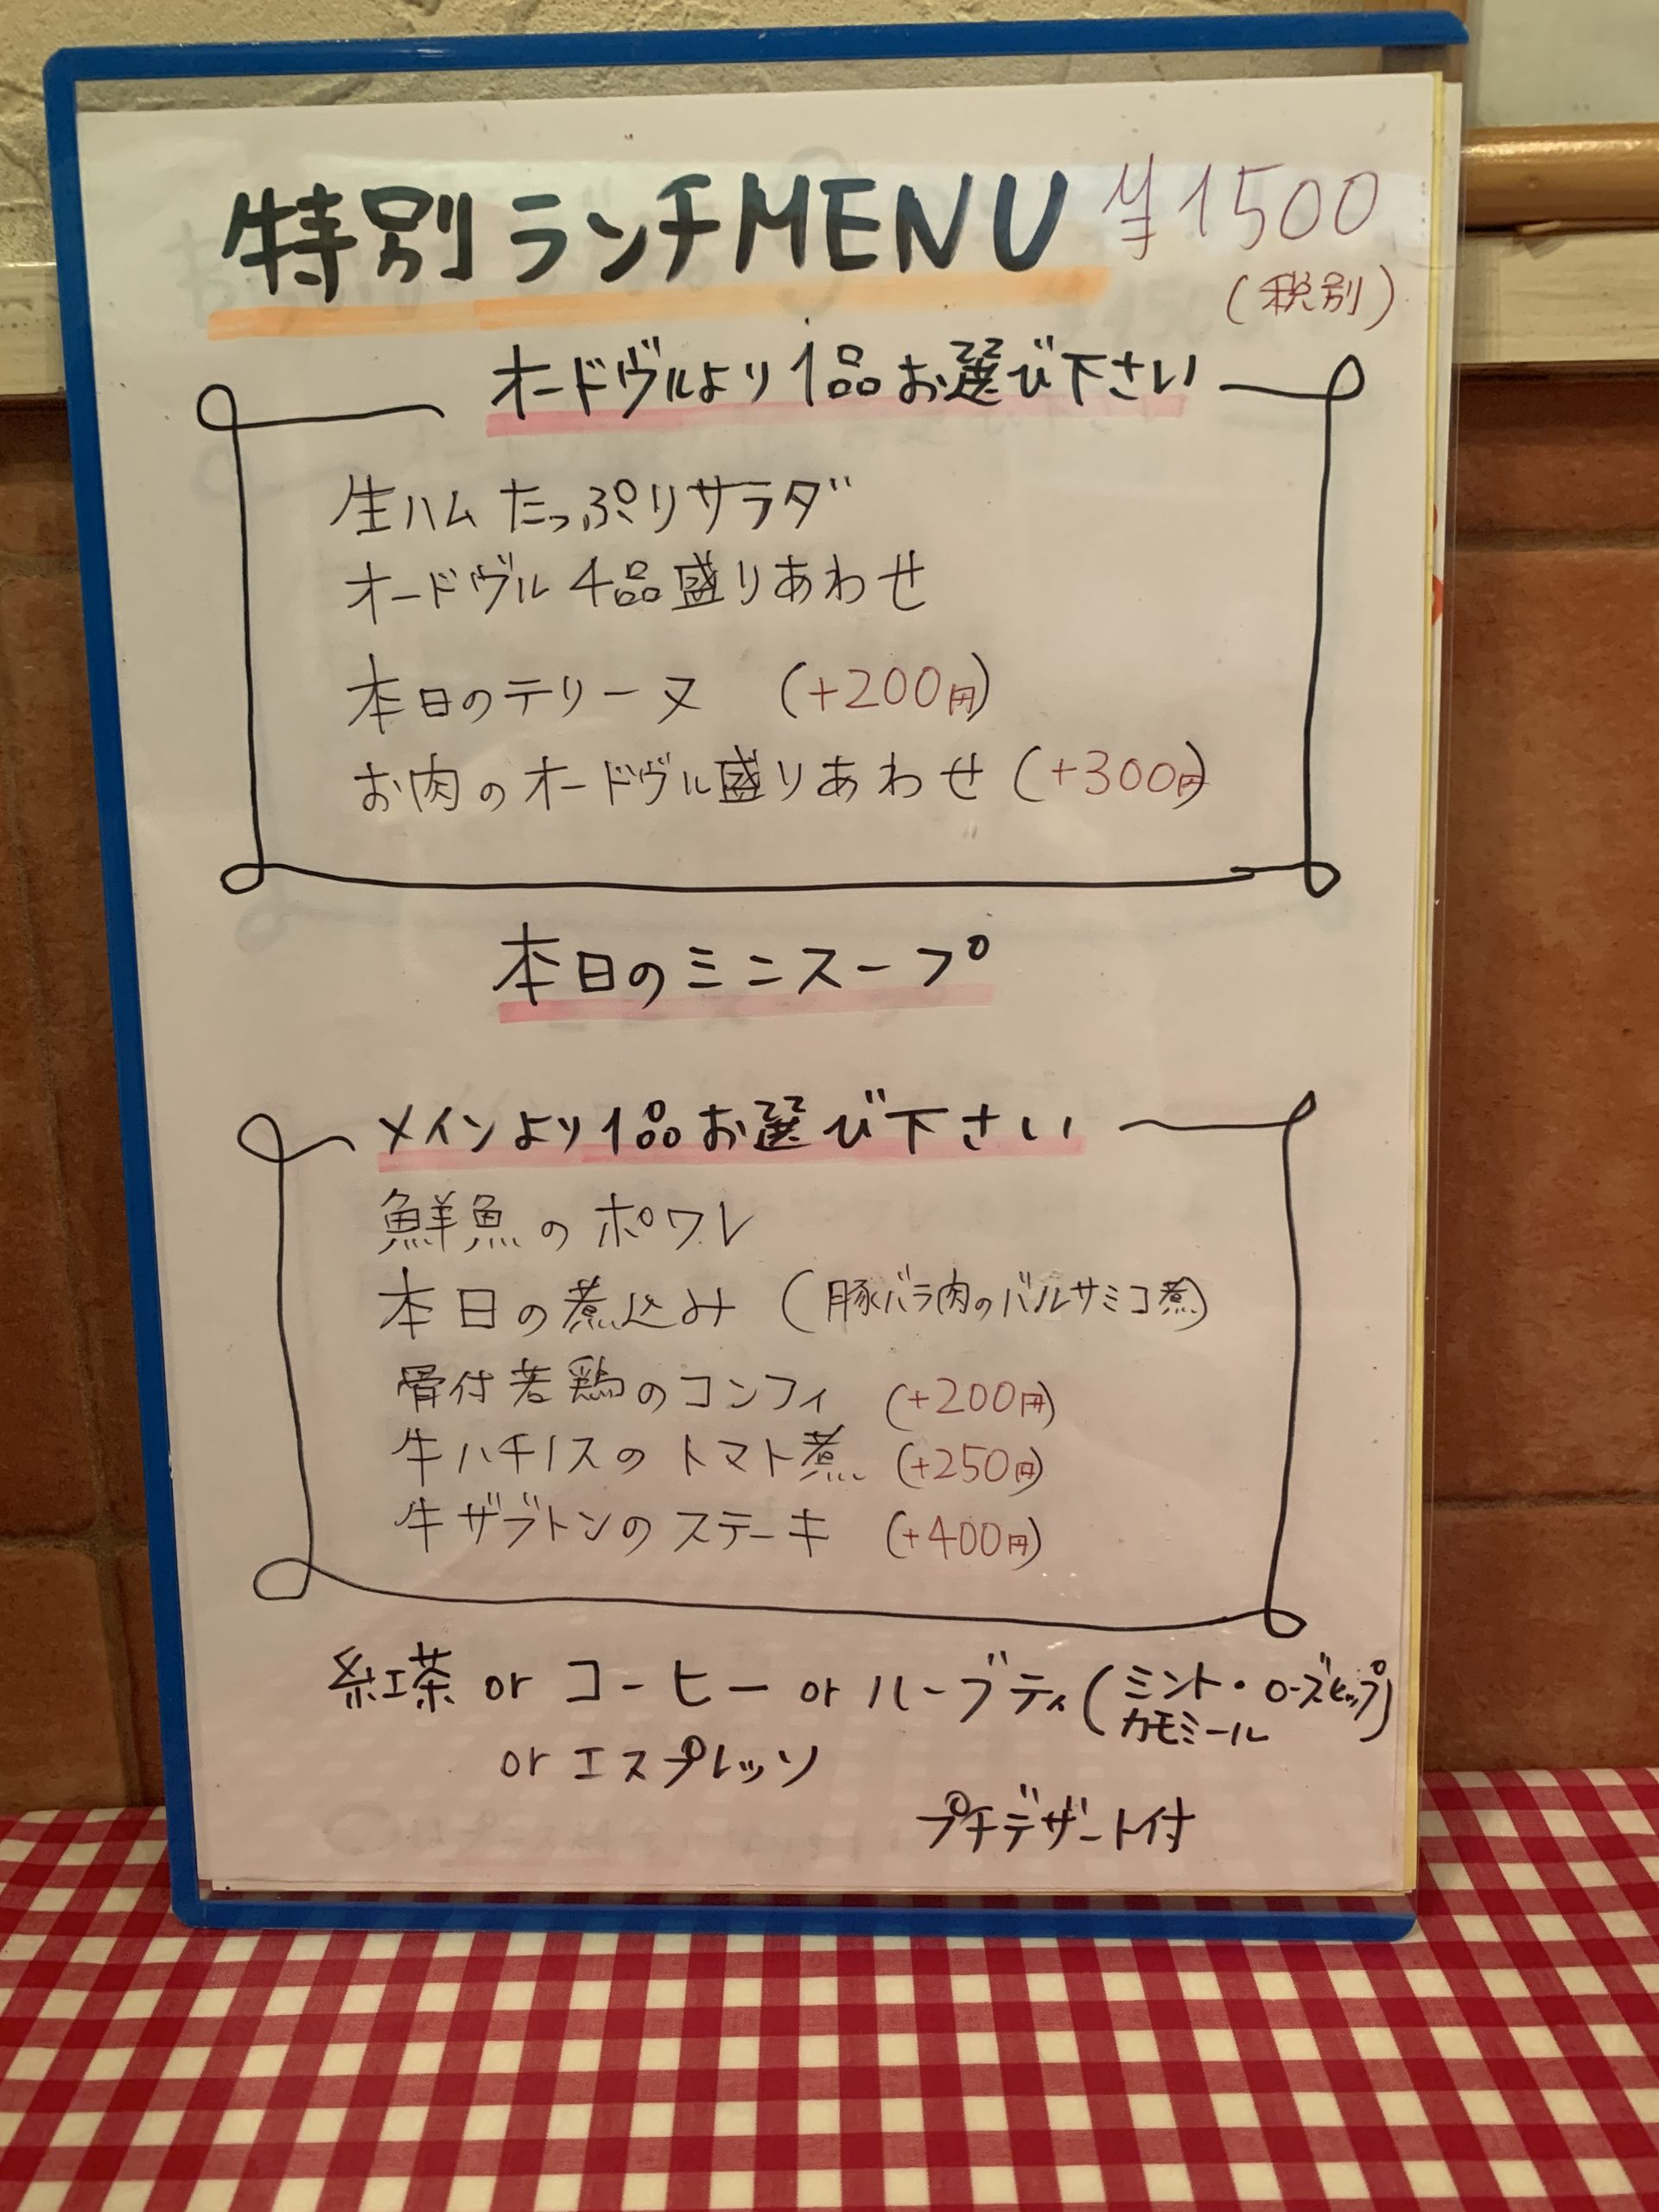 特別ランチMENU ¥1500
(税別)
オードヴルより1品お選び下さい
生ハムたっぷりサラダ
オードヴル4品盛りあわせ
本日のテリーヌ (+200円)
お肉のオードヴル盛りあわせ (+300円)
本日のミニスープ
メインより1品お選び下さい
鮮魚のポワレ
本日の煮込み (豚バラ肉のバルサミコ煮)
骨付若鶏のコンフィ (+200円)
牛ハチノスのトマト煮 (+250円)
牛ザブトンのステーキ (+400円)
紅茶 or コーヒー or ハーブティ (ミント・ローズヒップ
カモミール)
or エスプレッソ
プチデザート付